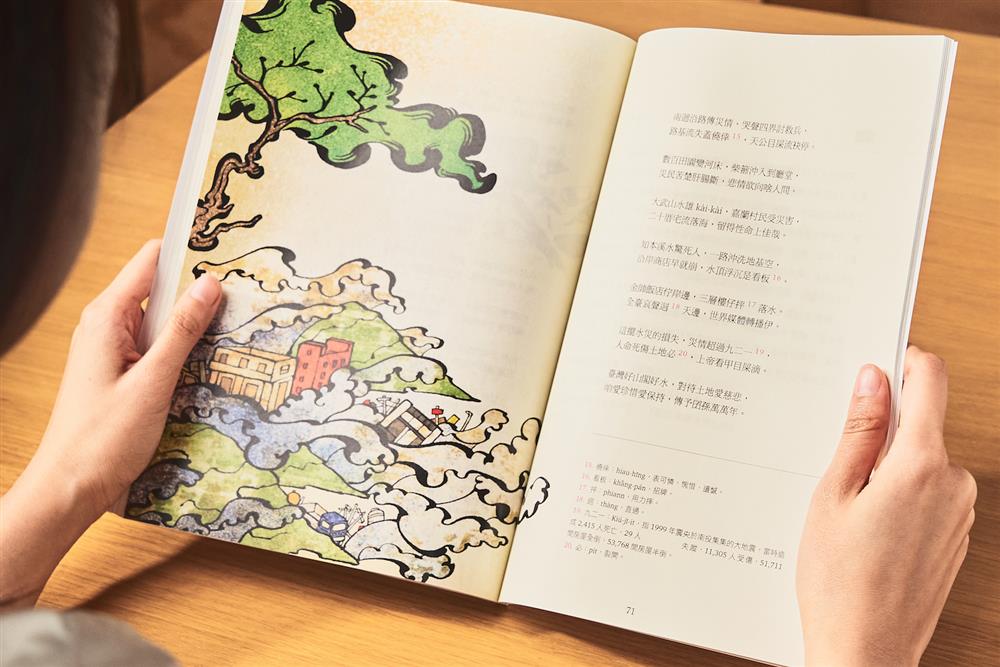 南迴沿路傳災情、哭聲四界討救兵,
路基流失蓋僥倖 15,天公目屎流袂停。
數百田園變河床,柴箍沖入到廳堂,
災民苦楚肝腸斷,悲情欲向啥人問。
大武山水雄 kài-kài,嘉蘭村民受災害,
二十厝宅流落海,留得性命上佳哉。
知本溪水驚死人,一路沖洗地基空,
沿岸商店早就崩,水頂浮沉是看板 16。
金帥飯店佇岸邊,三層樓仔摔 17 落水。
全臺哀聲迵 18 天邊,世界媒體轉播伊。
這擺水災的損失,災情超過九二一 19,
人命死傷土地必 20,上帝看甲目屎滴。
臺灣好山閣好水,對待土地愛慈悲,
咱愛珍惜愛保持,傳予囝孫萬萬年。
15. 僥倖:hiau-hīng,表可憐、惋惜、遺憾。
16. 看板:khǎng-pán,招牌。
17. 摔:phiann,用力摔。
18. 迵:thàng,直通。
19. 九二一:Kiú-jī-it,指 1999 年震央於南投集集的大地震,當時造
成 2,415 人死亡,29 人失蹤,11,305 人受傷,51,711
間房屋全倒,53,768 間房屋半倒。
20. 必:pit,裂開。
71